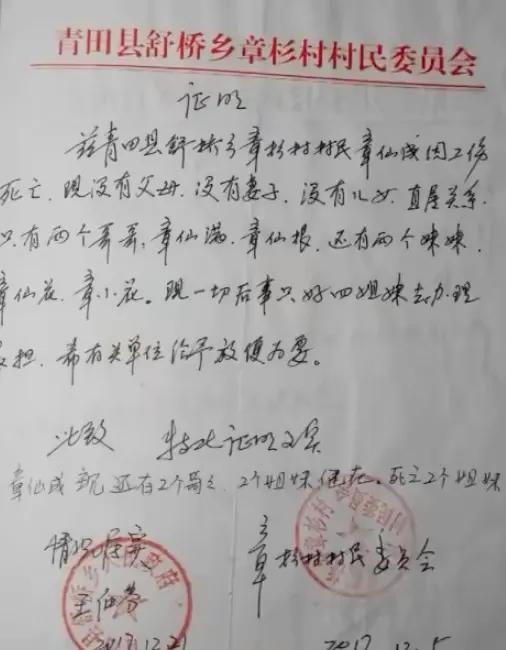 青田县舒桥乡章杉村村民委员会
证明
兹青田县舒桥乡章杉村村民章仙成因工伤
死亡.现没有父母.没有妻子.没有儿女.直属关系.
只有两个哥哥,章仙满.章仙根.还有两个妹妹.
章仙花.章小花。现一切后事只好四姐妹去办理
承担.希有关单位给予放便为要。
此致 特此证明文实
章仙成现还有2个哥哥.2个姐妹健在.死亡2个姐妹
情况属实 章杉村村民委员会
2017.12.21 2017.12.5